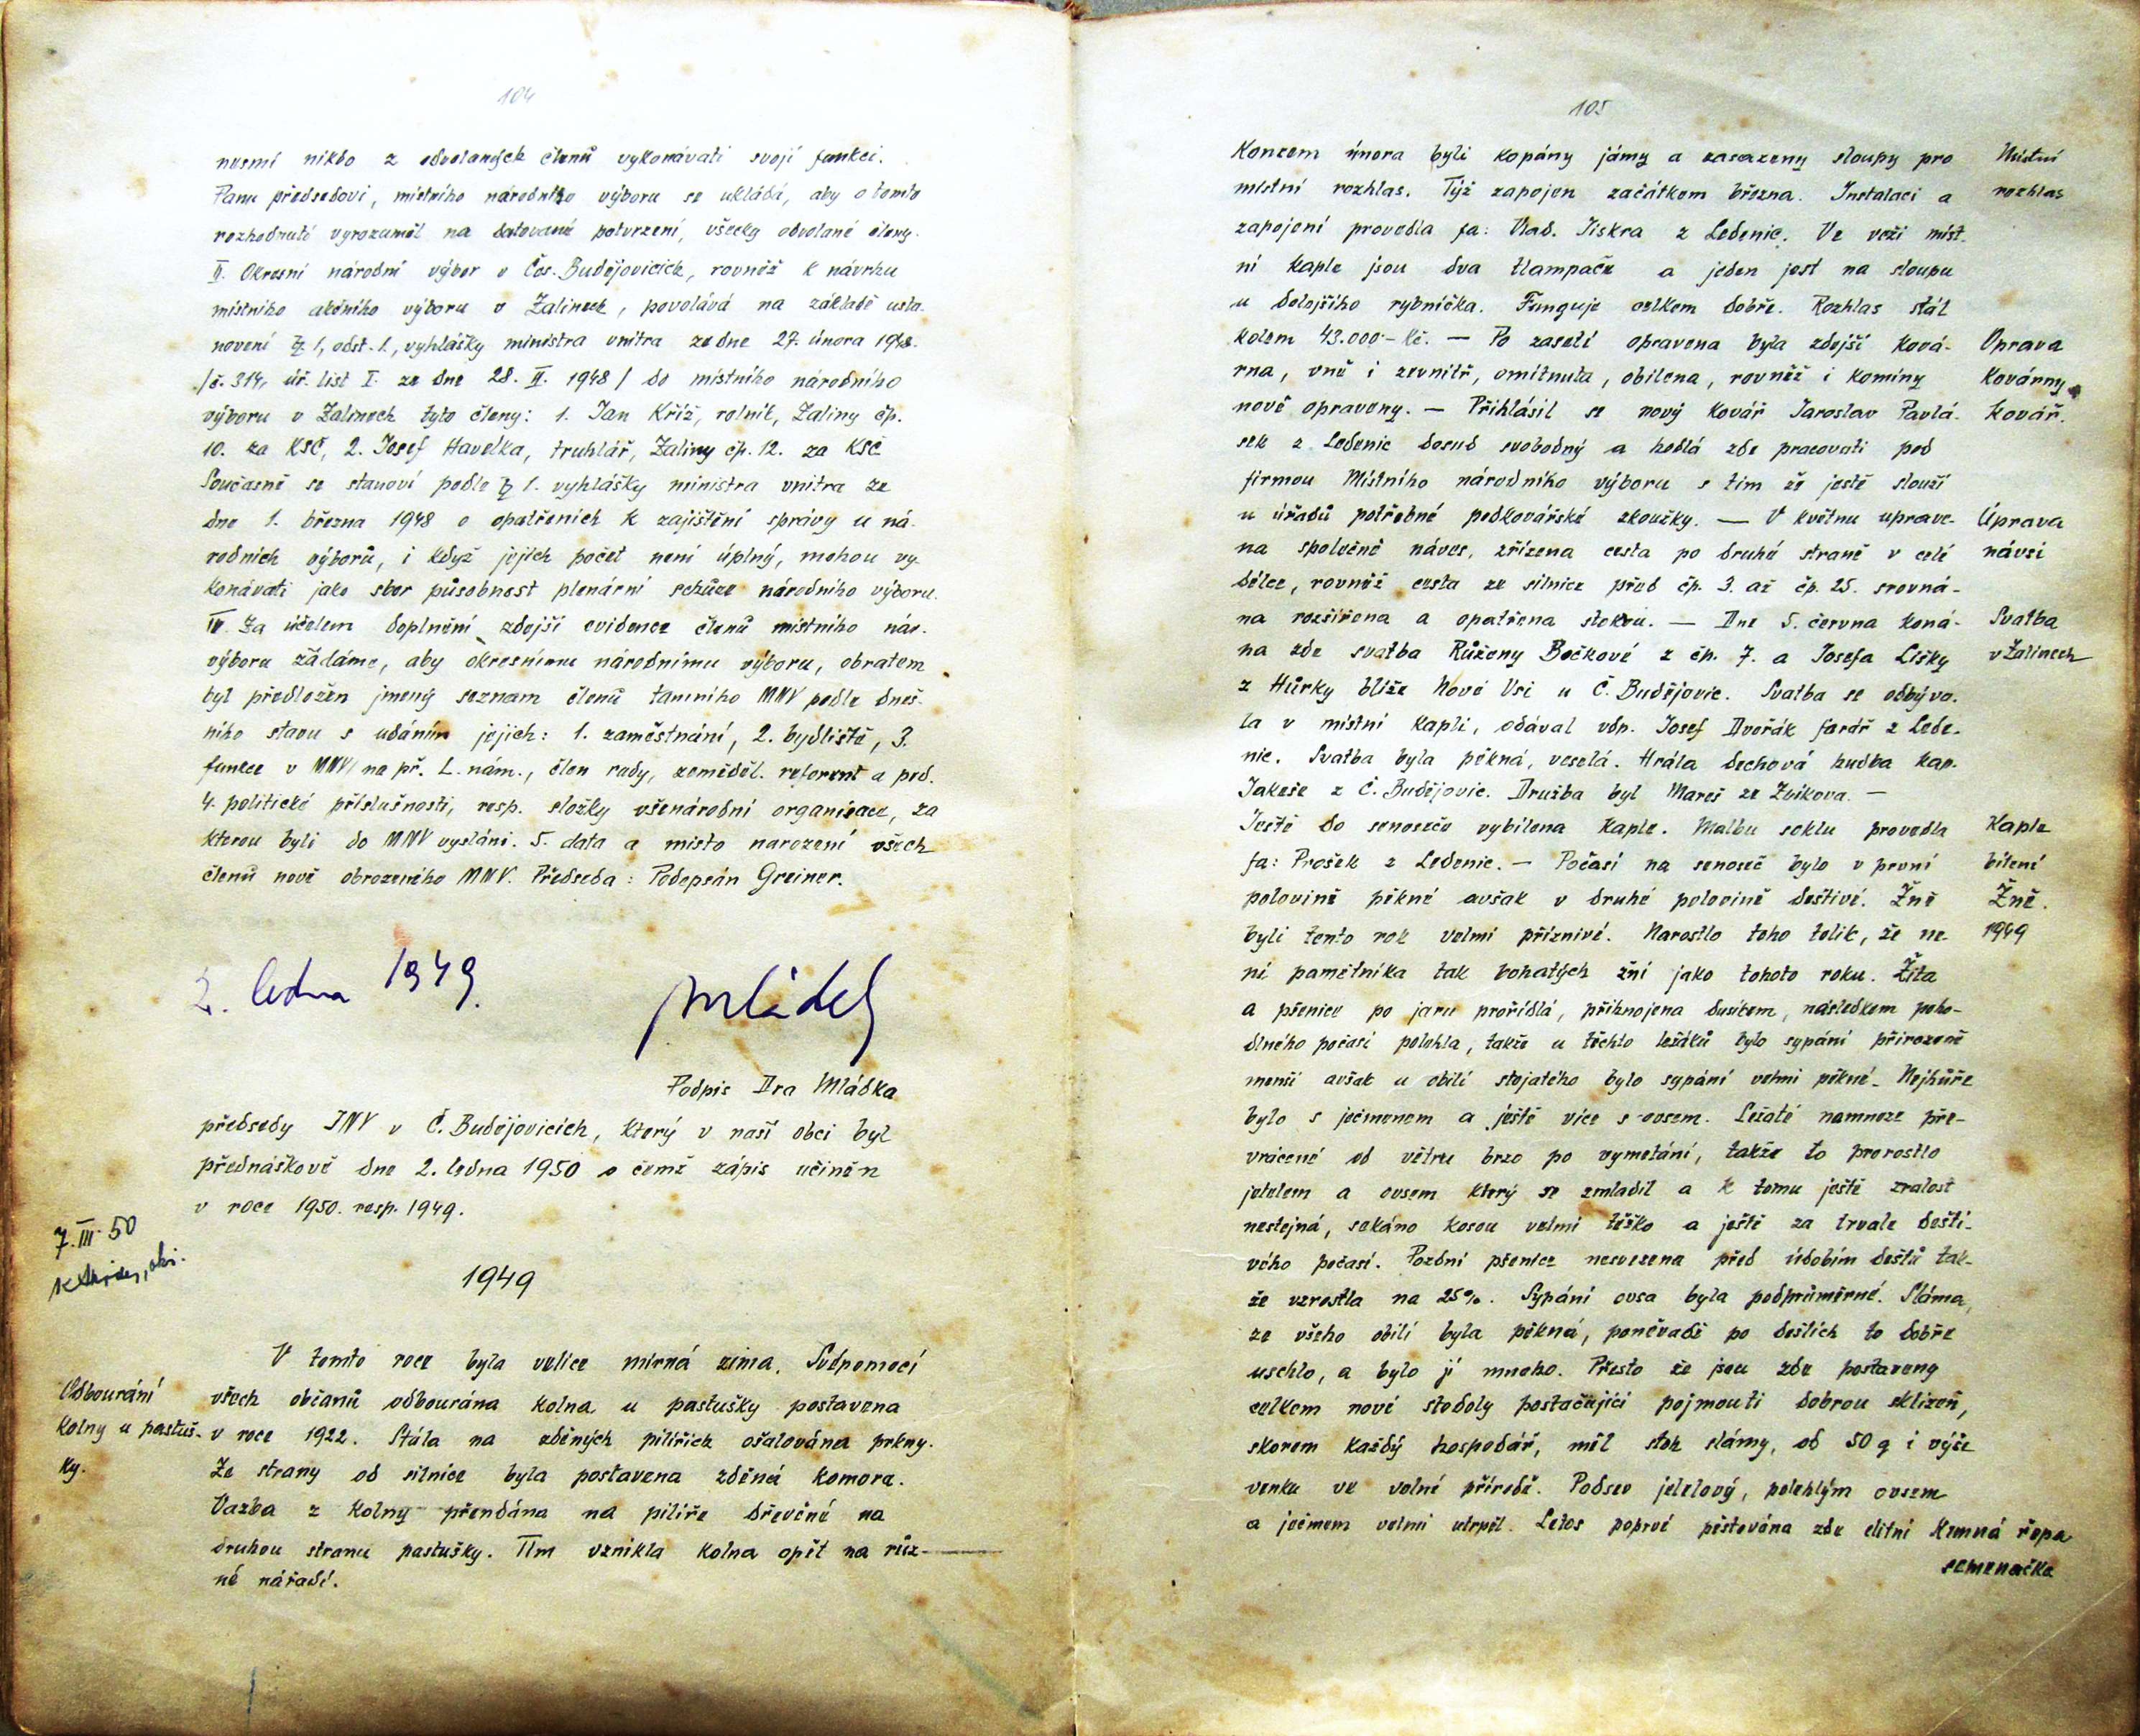 104
nesmí nikdo z odvolaných členů vykonávati svoji funkci.
Panu předsedovi, místního národního výboru se ukládá, aby o tomto
rozhodnutí vyrozuměl na datované potvrzení, všecky odvolané členy.
II. Okresní národní výbor v Čes. Budějovicích, rovněž k návrhu
místního akčního výboru v Žalinech, povolává na základě usta-
novení § 1, odst. 1., vyhlášky ministra vnitra ze dne 27. února 1948.
/č. 314, úř. list I. ze dne 28. II. 1948/ do místního národního
výboru v Žalinech tyto členy: 1. Jan Kříž, rolník, Žaliny čp.
10. za KSČ, 2. Josef Havelka, truhlář, Žaliny čp. 12. za KSČ
Současně se stanoví podle § 1. vyhlášky ministra vnitra ze
dne 1. března 1948 o opatřeních k zajištění správy u ná-
rodních výborů, i když jejich počet není úplný, mohou vy-
konávati jako sbor působnost plenární schůze národního výboru.
III. Za účelem doplnění zdejší evidence členů místního nár.
výboru žádáme, aby okresnímu národnímu výboru, obratem
byl předložen jmený seznam členů tamního MNV podle dneš-
ního stavu s udáním jejich: 1. zaměstnání, 2. bydliště, 3.
funkce v MNV/ na př. L. nám., člen rady, zeměděl. referent a pod.
4. politické příslušnosti, resp. složky všenárodní organisace, za
kterou byli do MNV vysláni. 5. data a místo narození všech
členů nově obrozeného MNV. Předseda: Podepsán Greiner.
2. ledna 1949. Mládek
Podpis Dra Mládka
předsedy JNV v Č. Budějovicích, který v naší obci byl
přednáškově dne 2. ledna 1950 o čemž zápis učiněn
v roce 1950. resp. 1949.
7. III. 50
1949
V tomto roce byla velice mírná zima. Svépomocí
Odbourání všech občanů odbourána kolna u pastušky postavena
kolny u pastuš- v roce 1922. Stála na zděných pilířích ošalována prkny.
ky. Ze strany od silnice byla postavena zděná komora.
Vazba z kolny přendána na pilíře dřevěné na
druhou stranu pastušky. Tím vznikla kolna opět na růz-
né nářadí.
105
Koncem února byli kopány jámy a zasazeny sloupy pro Místní
místní rozhlas. Týž zapojen začátkem března. Instalaci a rozhlas
zapojení provedla fa: Vlad. Jiskra z Ledenic. Ve veži míst-
ní kaple jsou dva tlampače a jeden jest na sloupu
u dolejšího rybníčka. Funguje celkem dobře. Rozhlas stál
kolem 43.000.- Kč. — Po zasetí opravena byla zdejší ková- Oprava
rna, vně i zevnitř, omítnuta, obílena, rovněž i komíny kovárny
nově opraveny. — Přihlásil se nový kovář Jaroslav Pavlá- kovář.
sek z Ledenic dosud svobodný a hodlá zde pracovati pod
firmou Místního národního výboru s tím že ještě složí
u úřadů potřebné podkovářské zkoušky. — V květnu uprave- Úprava
na společně náves, zřízena cesta po druhé straně v celé návsi
délce, rovněž cesta ze silnice před čp. 3. až čp. 25. srovná-
na rozšířena a opatřena stokou. — Dne 5. června koná- Svatba
na zde svatba Růženy Bočkové z čp. 7. a Josefa Lišky v Žalinech
z Hůrky blíže Nové Vsi u Č. Budějovic. Svatba se odbýva-
la v místní kapli, odával vdp. Josef Dvořák farář z Lede-
nic. Svatba byla pěkná, veselá. Hrála dechová hudba kap.
Jakeše z Č. Budějovic. Družba byl Mareš ze Zvíkova. —
Ještě do senoseče vybílena kaple. Malbu soklu provedla Kaple
fa: Prošek z Ledenic. — Počasí na senoseč bylo v první bílení
polovině pěkné avšak v druhé polovině deštivé. Žně Žně.
byli tento rok velmi příznivé. Narostlo toho tolik, že ne- 1949
ní pamětníka tak bohatých žní jako tohoto roku. Žita
a pšenice po jaru prořídlá, přihnojena dusíkem, následkem poho-
dlného počasí polehla, takže u těchto ležáků bylo sypání přirozeně
menší avšak u obilí stojatého bylo sypání velmi pěkné. Nejhůře
bylo s ječmenem a ještě více s ovsem. Ležaté namnoze pře-
vrácené od větru brzo po vymetání, takže to prorostlo
jetelem a ovsem který se zmladil a k tomu ještě zralost
nestejná, sekáno kosou velmi těžko a ještě za trvale dešti-
vého počasí. Pozdní pšenice nesvezena před údobím dešťů tak-
že vzrostla na 25%. Sypání ovsa byla podprůměrné. Sláma,
ze všeho obilí byla pěkná, poněvadž po deštích to dobře
uschlo, a bylo jí mnoho. Přesto že jsou zde postaveny
celkem nové stodoly postačující pojmouti dobrou sklizeň,
skorem každý hospodář, měl stoh slámy, od 50 q i výše
venku ve volné přírodě. Podsev jetelový, polehlým ovsem
a ječmem velmi utrpěl. Letos poprvé pěstována zde elitní Krmná řepa
semenačka